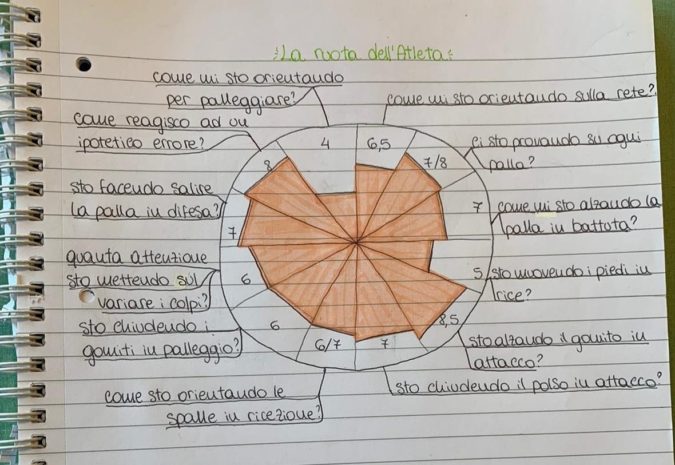 La ruota dell'Atleta:
come mi sto orientando
per palleggiare?
come mi sto orientando sulla rete?
come reagisco ad un
ipotetico errore?
ci sto provando su ogni
palla?
4
6,5
7/8
8
sto facendo salire
la palla in difesa?
7
7
come mi sto alzando la
palla in battuta?
quanta attenzione
sto mettendo sul
variare i colpi?
6
5
sto muovendo i piedi in
rice?
sto chiudendo i
gomiti in palleggio?
6
6/7
7
8,5
sto alzando il gomito in
attacco?
come sto orientando le
spalle in ricezione?
sto chiudendo il polso in attacco?